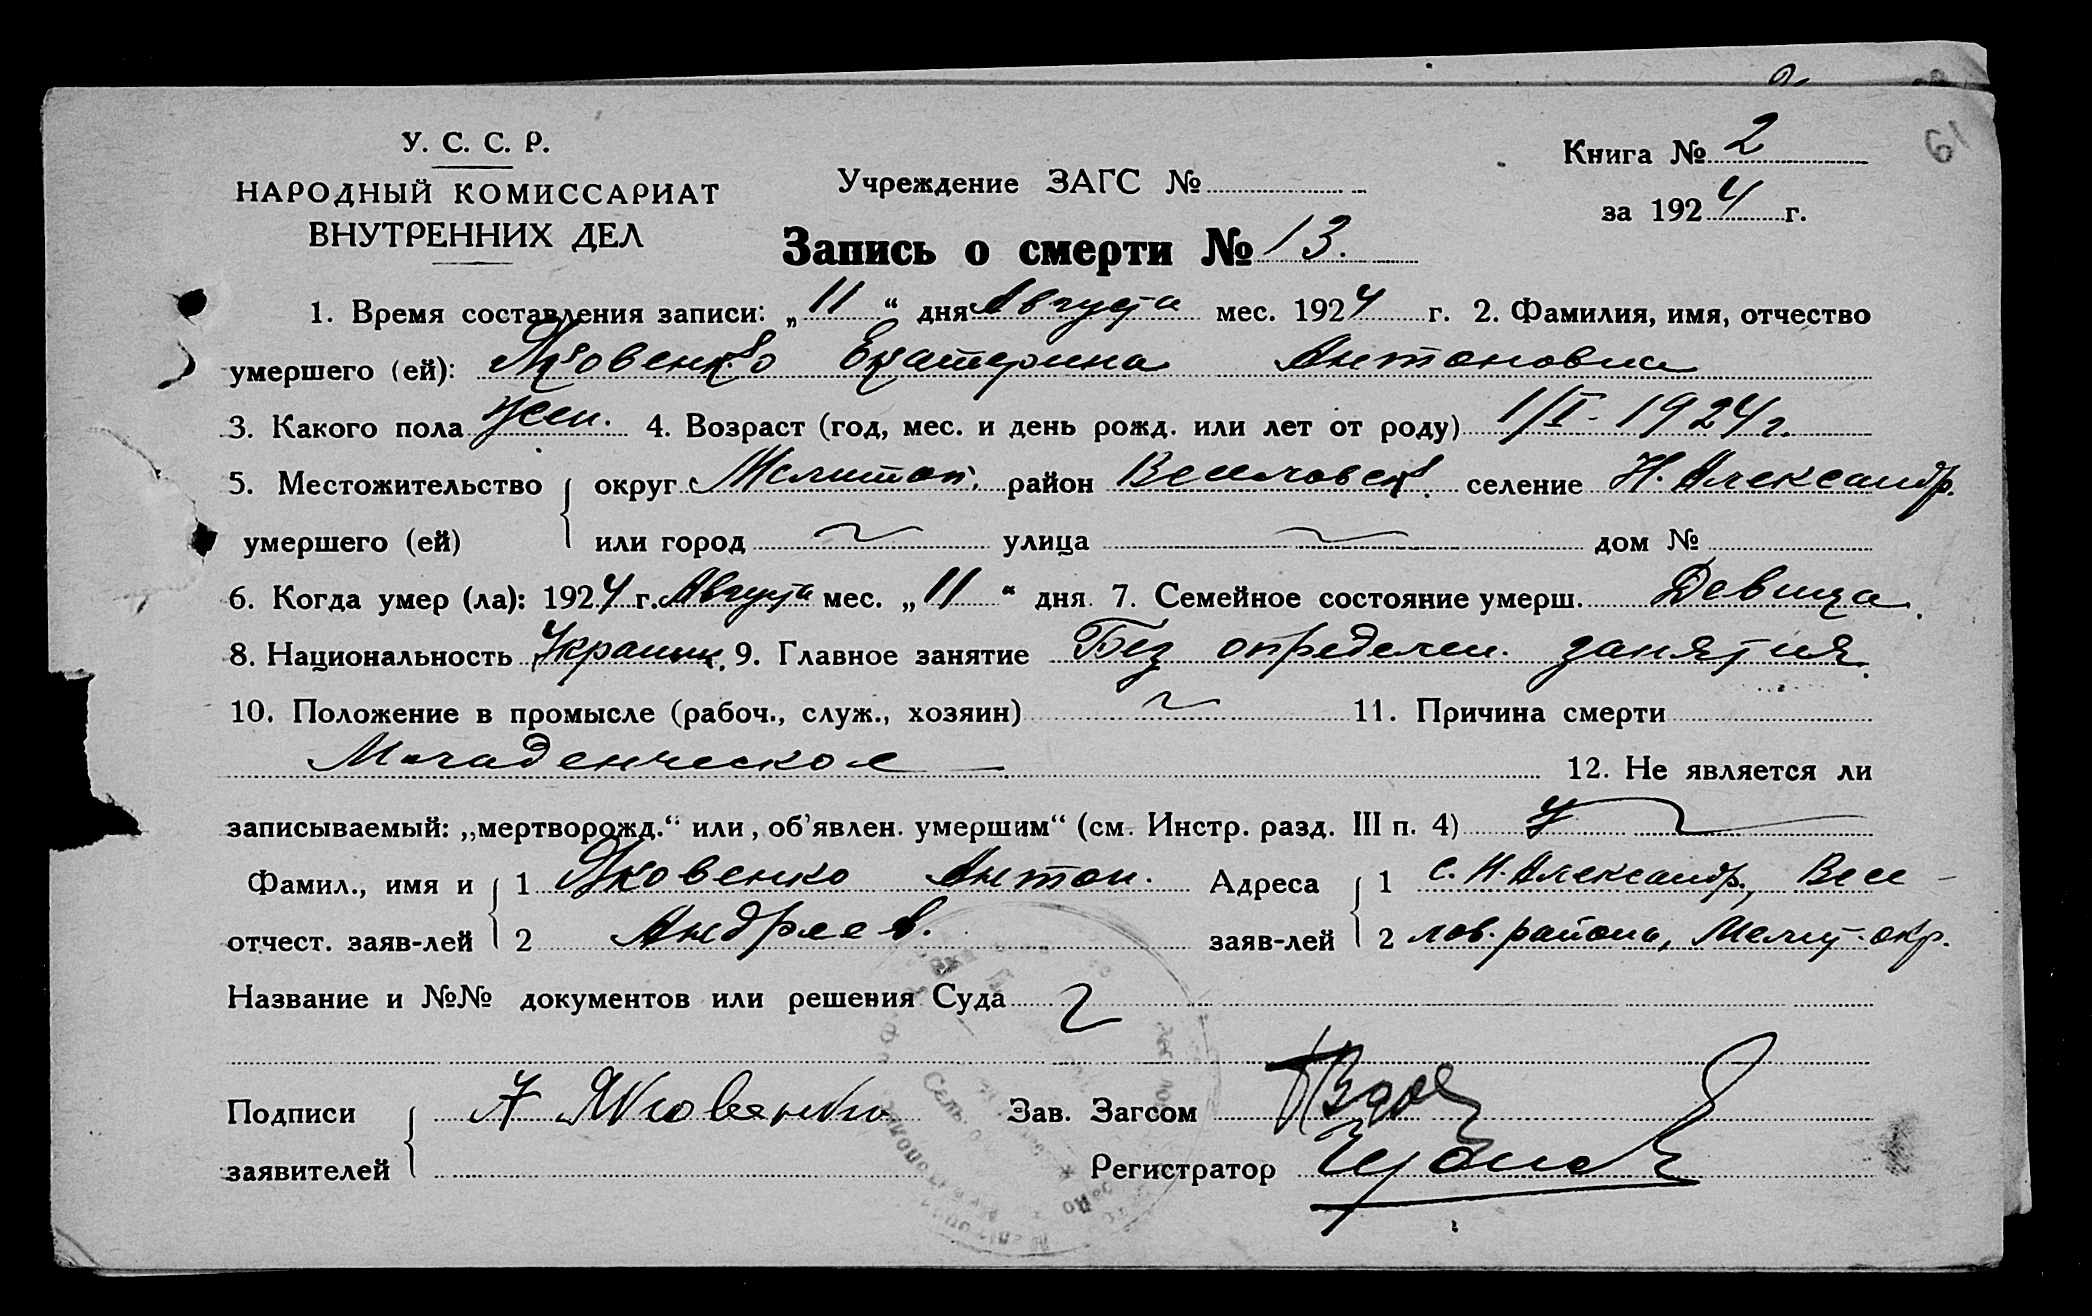 У. С. С. Р.
НАРОДНЫЙ КОМИССАРИАТ
ВНУТРЕННИХ ДЕЛ
Учреждение ЗАГС №
Книга № 2
за 1924 г.
61
Запись о смерти № 13.
1. Время составления записи: „11“ дня Августа мес. 1924 г. 2. Фамилия, имя, отчество
умершего (ей): Яковенко Екатерина Антоновна
3. Какого пола жен. 4. Возраст (год, мес. и день рожд. или лет от роду) 1/I-1924 г.
5. Местожительство округ Мелитоп. район Веселовск. селение Н. Александр.
умершего (ей) или город улица дом №
6. Когда умер (ла): 1924 г. Августа мес. „11“ дня 7. Семейное состояние умерш. Девица.
8. Национальность Украин. 9. Главное занятие Без определен. занятия.
10. Положение в промысле (рабоч., служ., хозяин) 11. Причина смерти
Младенческое 12. Не является ли
записываемый: „мертворожд.“ или „об’явлен. умершим“ (см. Инстр. разд. III п. 4)
Фамил., имя и 1 Яковенко Антон. Адреса 1 с. Н. Александр., Весе-
отчест. заяв-лей 2 Андреев. заяв-лей 2 лов. района, Мелит. окр.
Название и №№ документов или решения Суда
Подписи А Яковенко Зав. Загсом
заявителей Регистратор